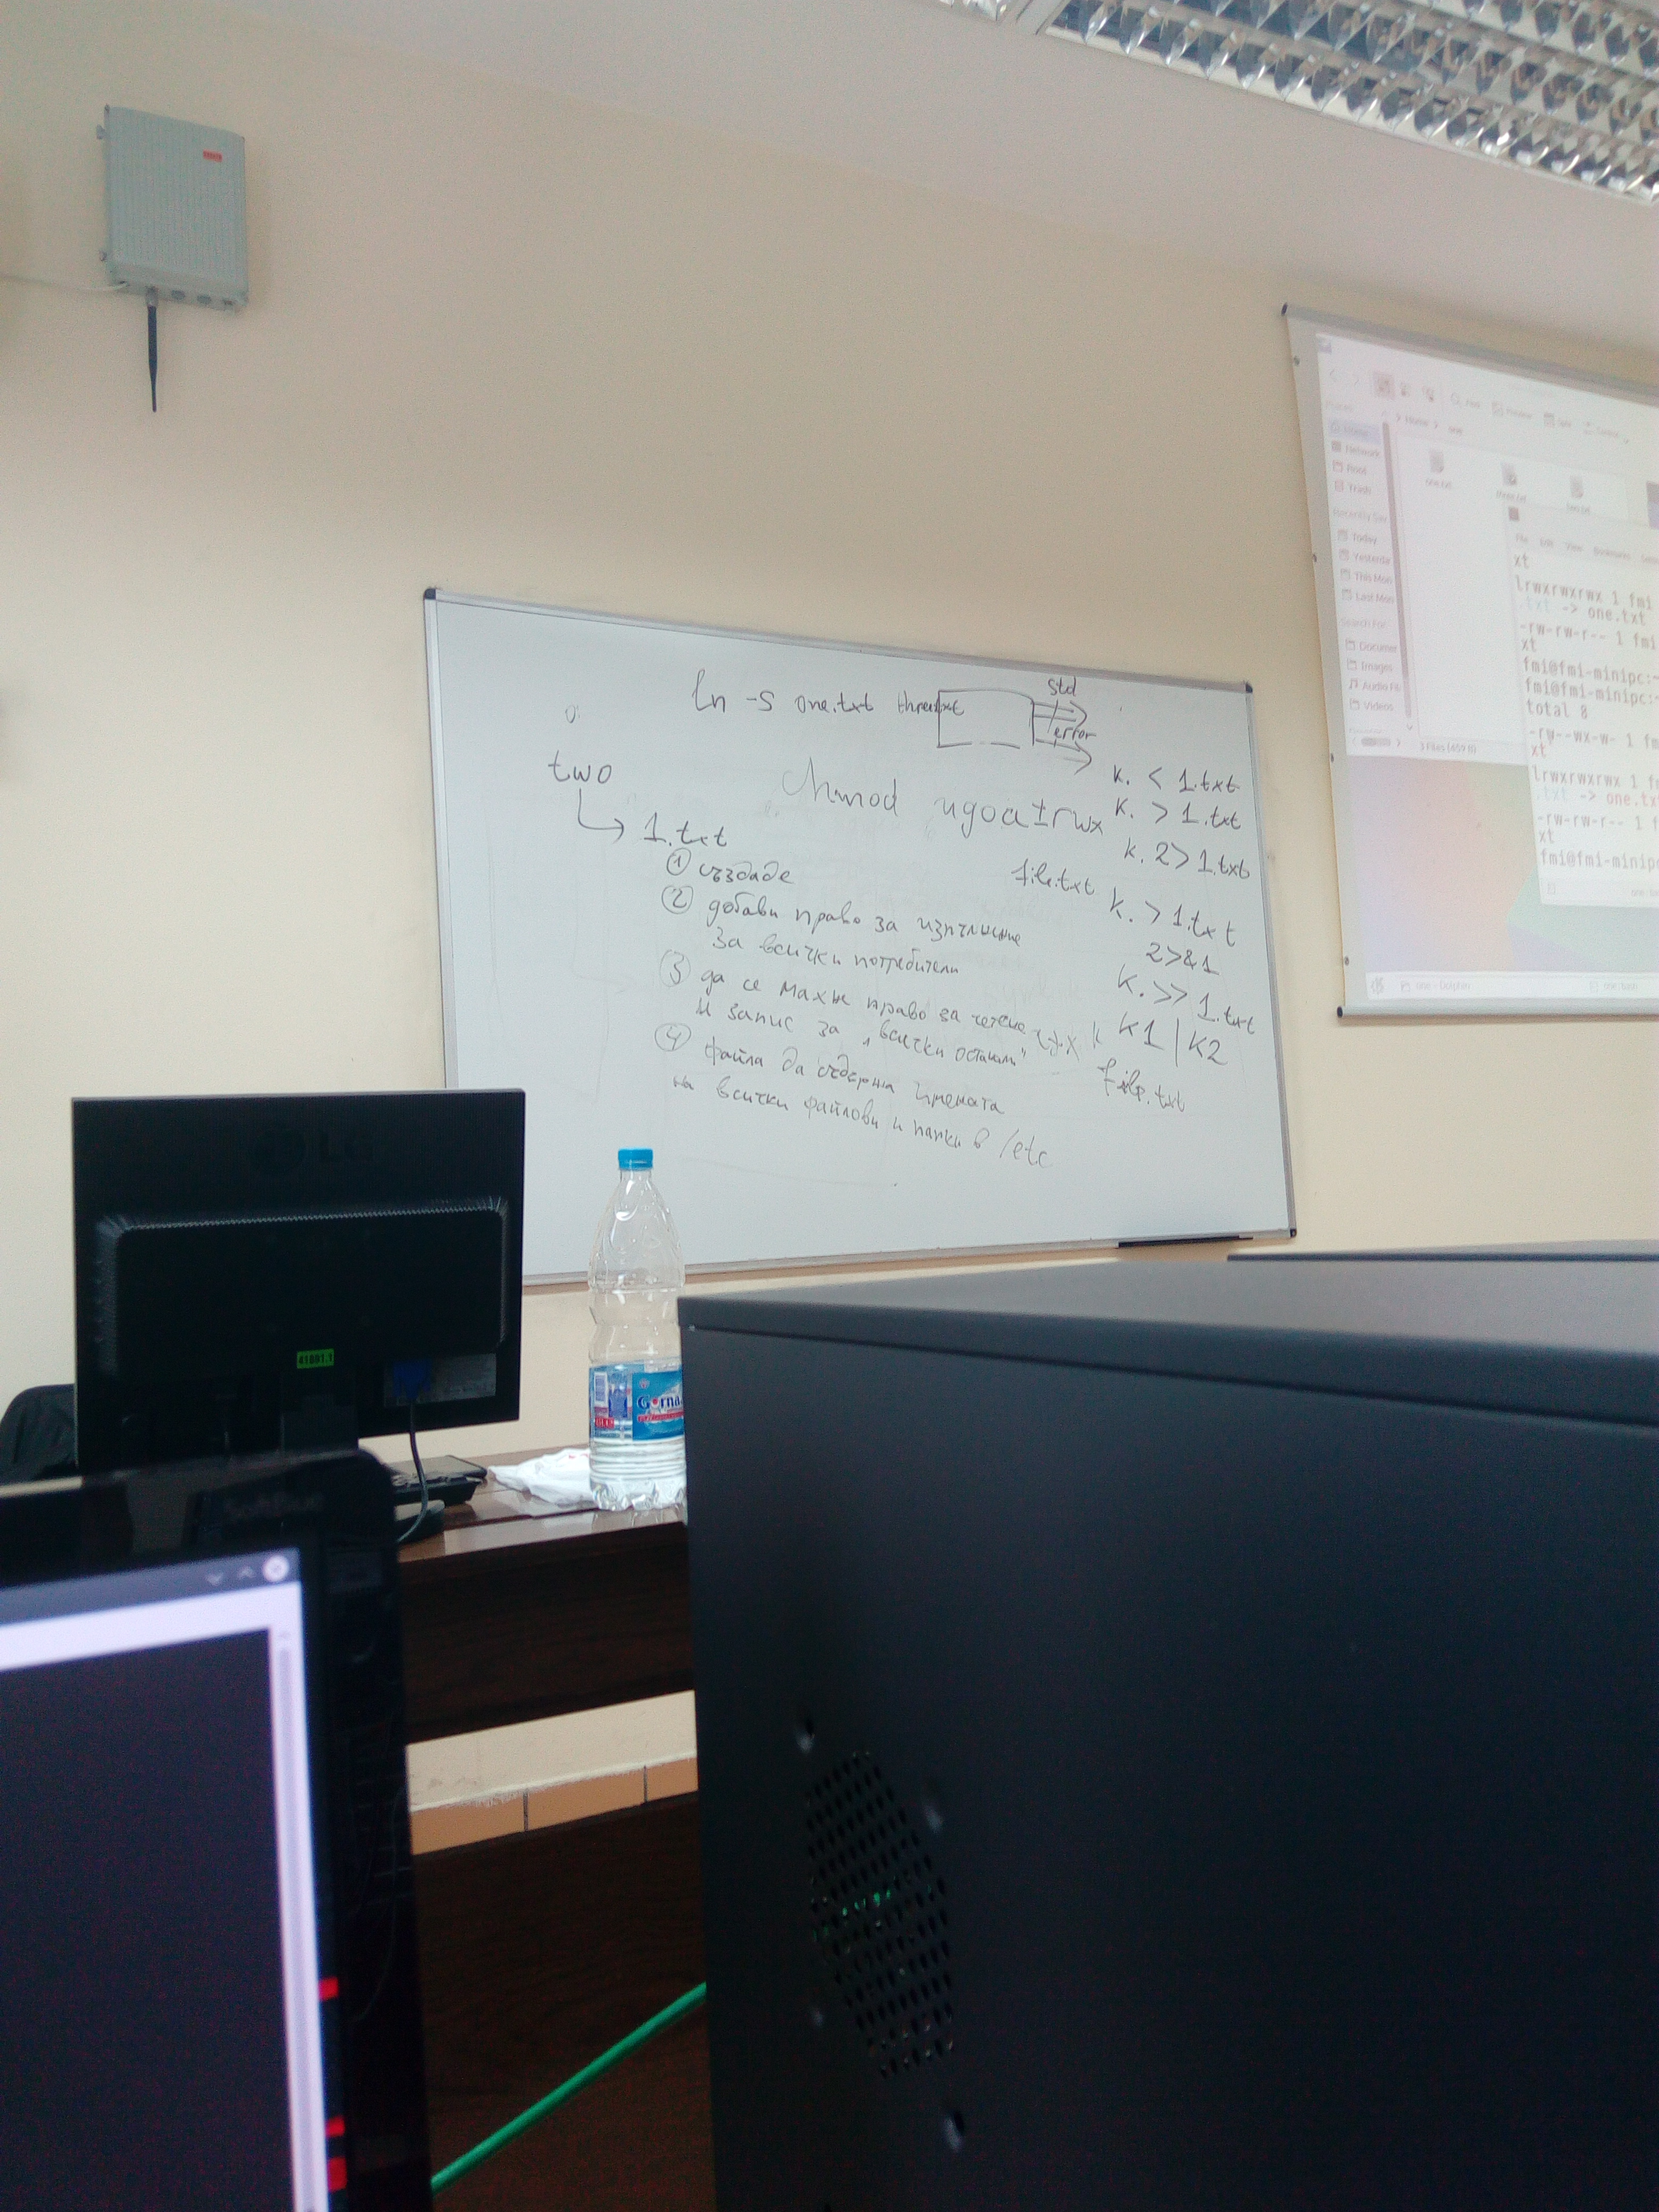 ln -s one.txt three.txt
std
error
two
1.txt
chmod ugoa±rwx
① създаде
② добави право за изпълнение
за всички потребители
③ да се махне право за четене
и запис за "всички останали"
④ файла да съдържа имената
на всички файлови и папки в /etc
к. < 1.txt
к. > 1.txt
к. 2> 1.txt
file.txt
к. > 1.txt
2>&1
к. >> 1.txt
к1 | к2
file.txt
LG
41801.1
Gorna
Home
Network
Root
Trash
Today
Yesterda
This Mon
Last Mon
Documen
Images
Audio Fil
Videos
3 Files (459 B)
one.txt
File Edit View Bookmarks
xt
lrwxrwxrwx 1 fmi
.txt -> one.txt
-rw-rw-r-- 1 fmi
xt
fmi@fmi-minipc:~
fmi@fmi-minipc:~
total 8
-rw--wx-w- 1 fm
xt
lrwxrwxrwx 1 fm
.txt -> one.txt
-rw-rw-r-- 1 f
xt
fmi@fmi-minip
one - Dolphin